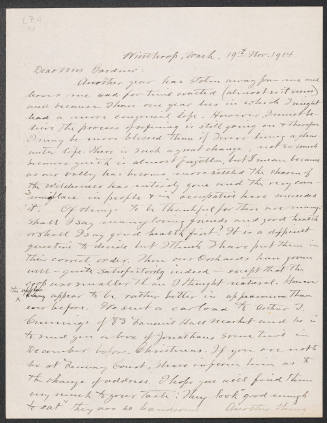 Winthrop, Wash. 19th Nov. 1914
Dear Mrs. Gardner.
Another year has stolen away from me and
leaves me sad for time wasted (almost
and because I have one year less in which I might
lead a more congenial life. However I must be-
lieve the process of refining is still going on & therefore
I may be more blessed than if I were living a dear
There is such a great change, not so much
because youth is almost forgotten, but I mean because
as our valley has become more settled the charm of
the wilderness has entirely gone and the very com-
monplace in people & in occupation have crowded
it. Of things to be thankful for there are many
shall I say many loving friends and good health
or shall I say good health first? It is a difficult
question to decide but I think I have put them in
their correct order. Then our Orchards have grown
well - quite satisfactorily indeed - except that the
crop was smaller than I thought natural. However
the apples
they appear to be rather better in appearance than
ever before. We sent a car load to Arthur T.
Cummings of 73 Faneuil Hall Market and he is
to send you a box of Jonathans some time in
December before Christmas. If you are not
to be at Fenway Court, please inform him as to
the change of address. I hope you will find them
very much to your taste. They look good enough
to eat they are so handsome. Another thing